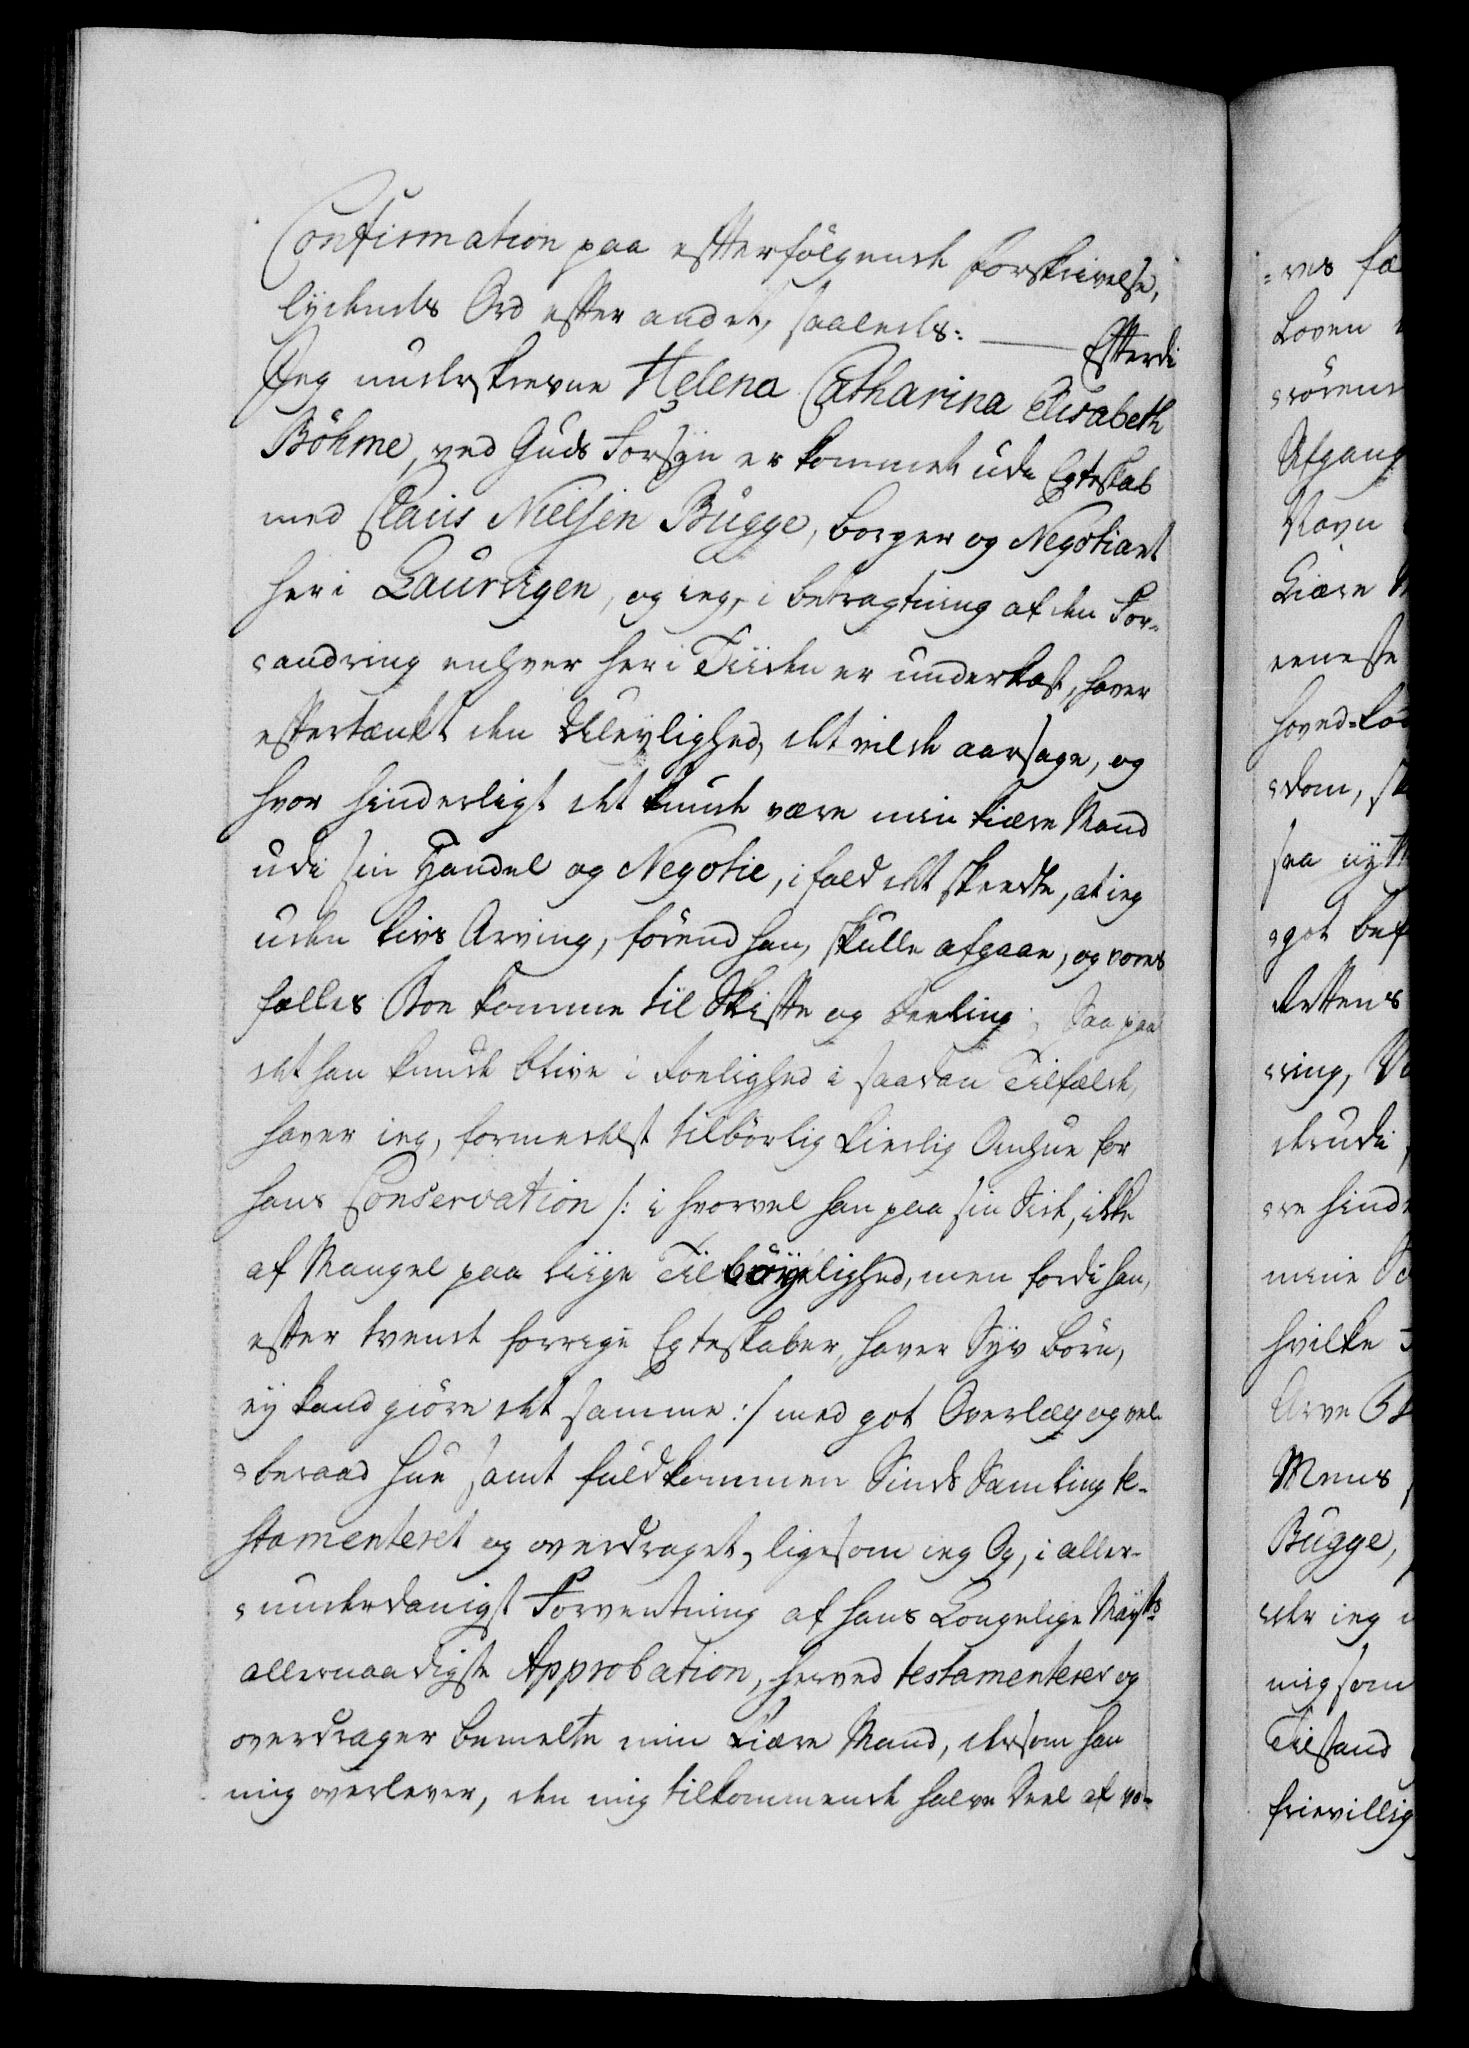 Confirmation paa effterfølgende Forskrivelse,
lydende Ord effter andet, saaledes: — Efterdi
Jeg underskrevne Helena Catharina Elisabeth
Böhme, ved Guds Forsyn er kommet udi Egteskab
med Claus Nielsen Bugge, borger og Negotiant
her i Laurvigen, og ieg, i betragtning af den For-
andring enhver her i Tiiden er underkast, haver
eftertænkt den Uleylighed, det vilde aarsage, og
hvor hinderligt det kunde være min kiære Mand
udi sin Handel og Negotie, i fald det skeedte, at ieg
uden Livs Arving, førend han, skulle afgaae, og vores
fælles Boe komme til Skifte og Deeling; Saa paa
det han kunde blive i Roelighed i saadan Tilfælde,
haver ieg, formedelst tilbørlig kierlig Omhue for
hans Conservation /: i hvorvel han paa sin Side, ikke
af Mangel paa liige Tilbøyelighed, men fordi han,
efter tvende forrige Egteskaber, haver Syv børn,
ey kand giøre det samme :/ med got Overlæg og vel-
beraad Hue samt fuldkommen Sinds Samling te-
stamenteret og overdraget, ligesom ieg og, i aller-
underdanigst Forventning af Hans Kongelige Mayts
allernaadigste Approbation, herved testamenterer og
overdrager bemelte min kiære Mand, dersom han
mig overlever, den mig tilkommende halve Deel af vo-
=res fæ
Loven
Afgang
Navn
Kiære M
eeneste
hoved=Lo
=dom, s
saa nytt
=got bef
Rettens
=ring, V
desudi
=re hind
mine
hvilke
Arve
Mens
Bugge,
ieg
mig som
Tilstand
frievillig